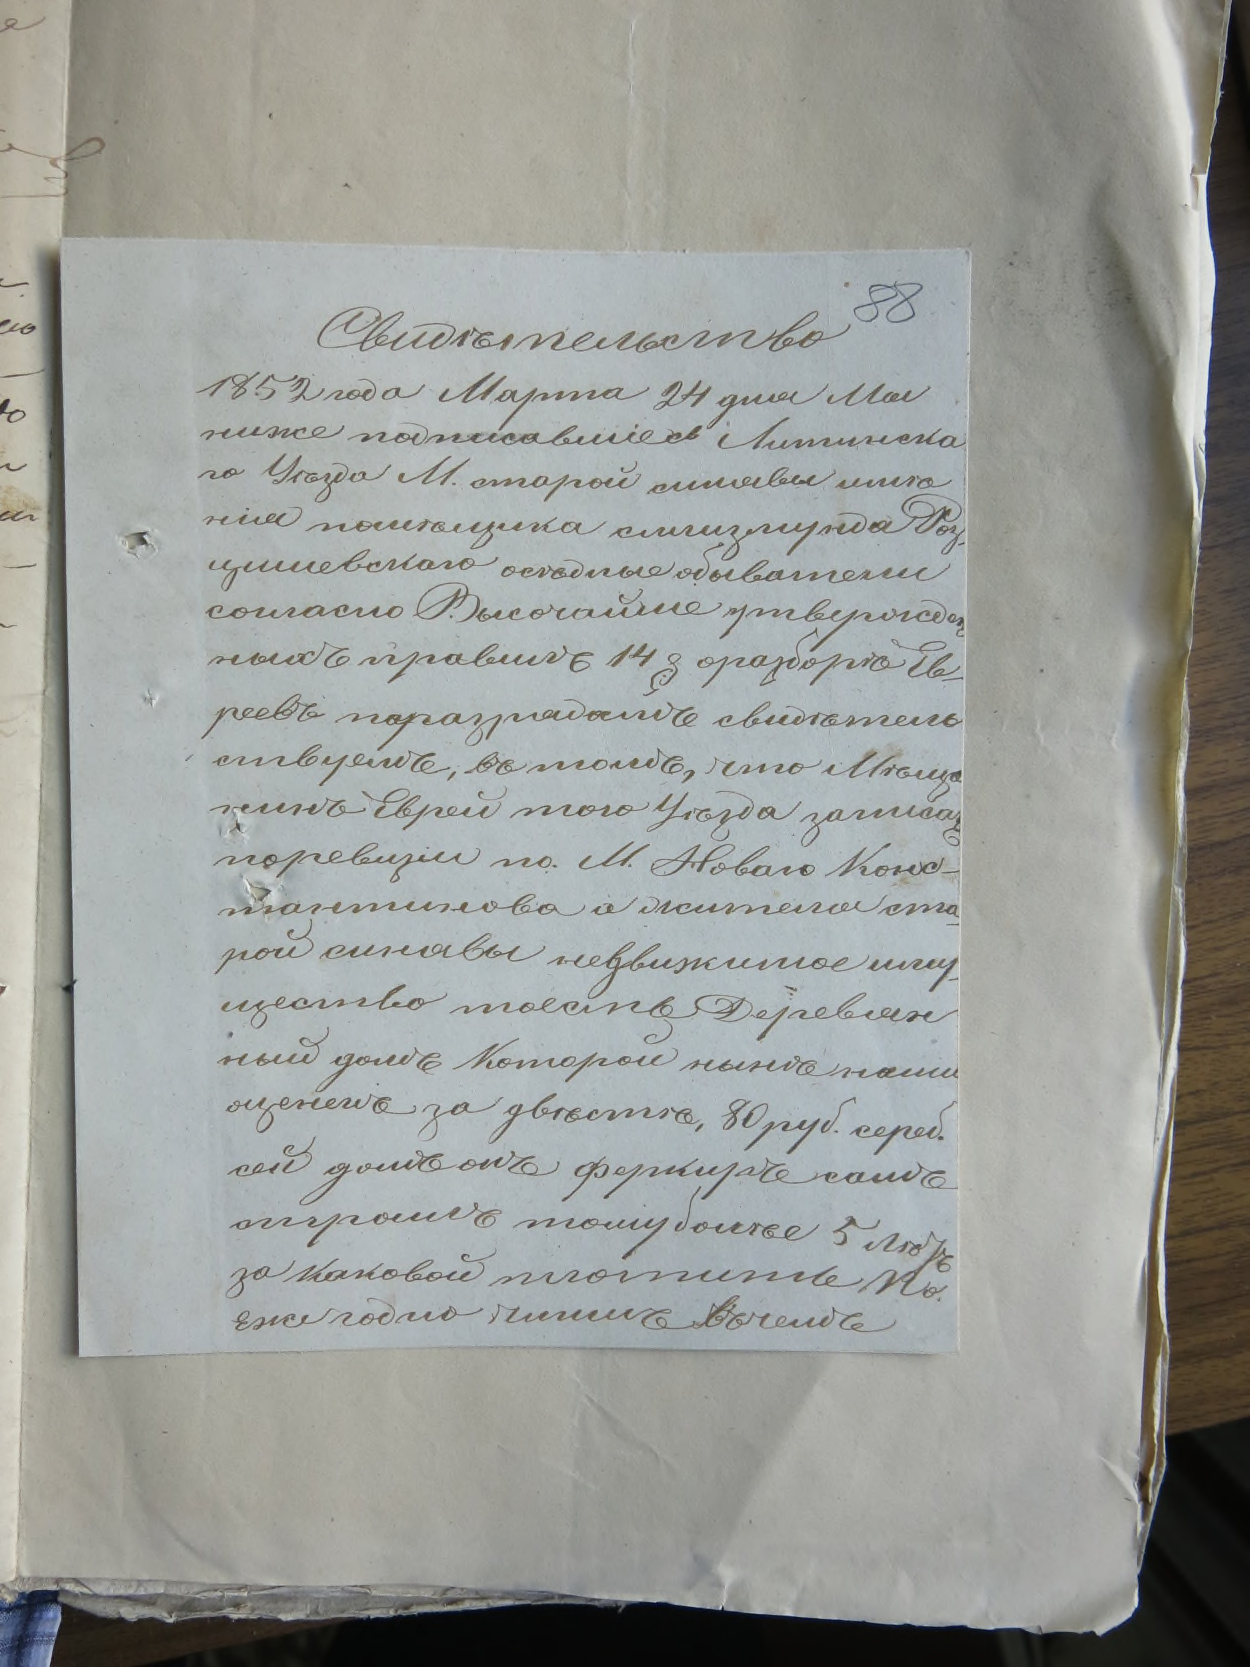 88
Свидѣтельство
1852 года Марта 24 дня Мы
ниже подписавшіесь Литинска
го Уѣзда М. старой синявы имѣ
нія помѣщика сигизмунда Роз
цишевскаго осѣдлые обыватели
согласно Высочайше утвержден
ныхъ правилъ 14 § оразборѣ Ев-
реевъ поразрядамъ свидѣтель
ствуемъ, въ томъ, что Мѣща
нинъ Еврей того Уѣзда записан
поревизіи по. М. Новаго Конс-
тантинова а жителя ста
рой синявы недвижимое иму-
щество тоесть Деревян
ный домъ Которой нынѣ нами
оценемъ за двѣстѣ, 80 руб. сереб.
сей домъ онъ феркиръ самъ
строилъ тому болѣе 5 лѣтъ
за каковой платитъ По.
ежегодно чиншъ въ чемъ